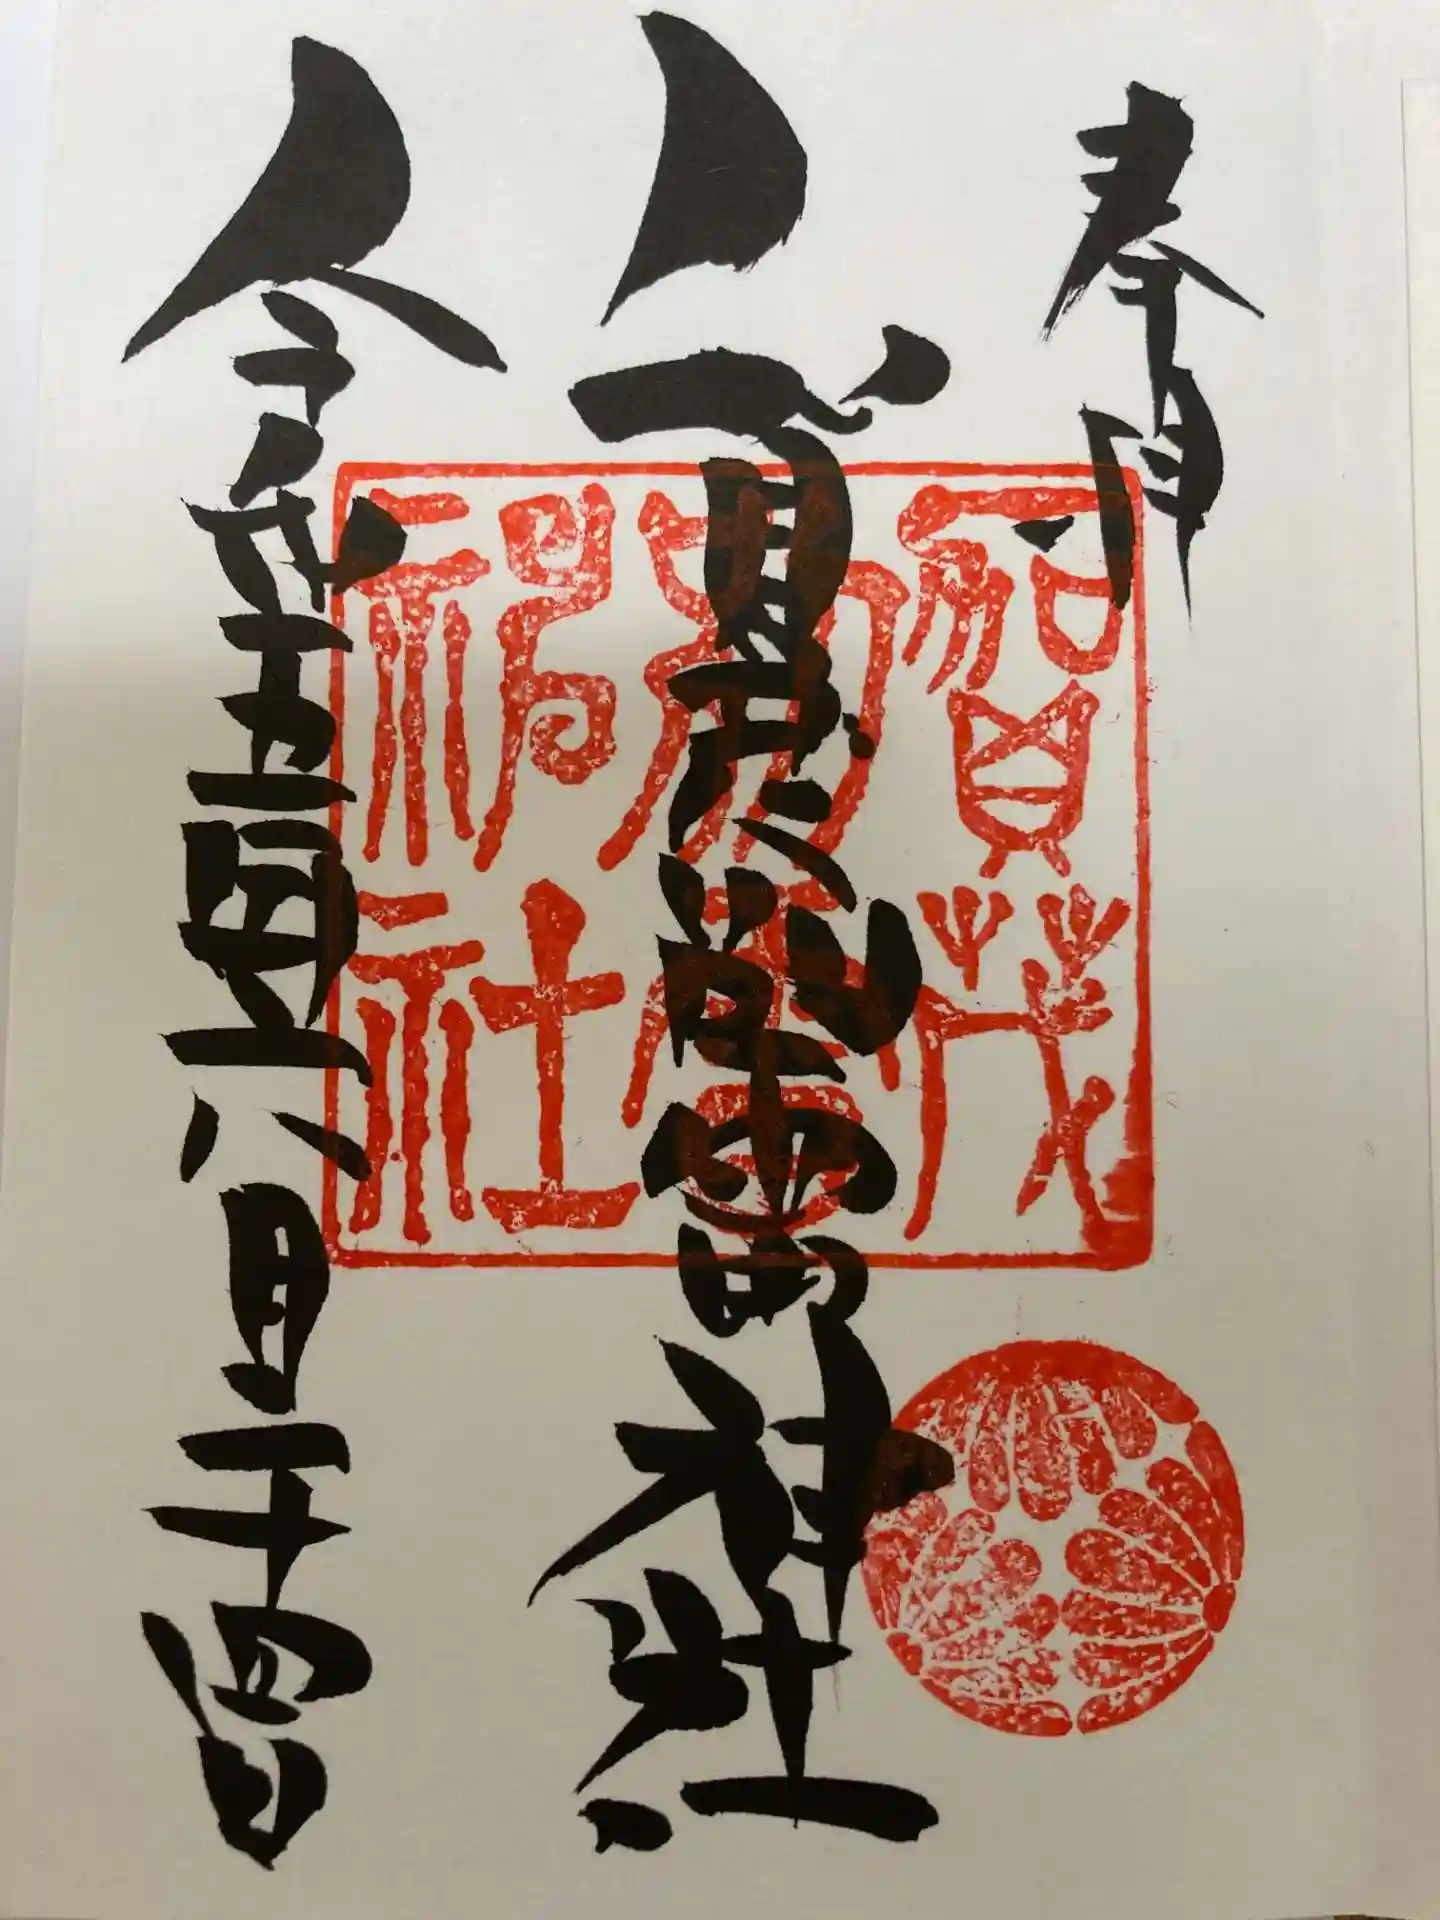 奉拝
賀茂別雷神社
賀茂
別雷
神社
令和五年六月二十四日